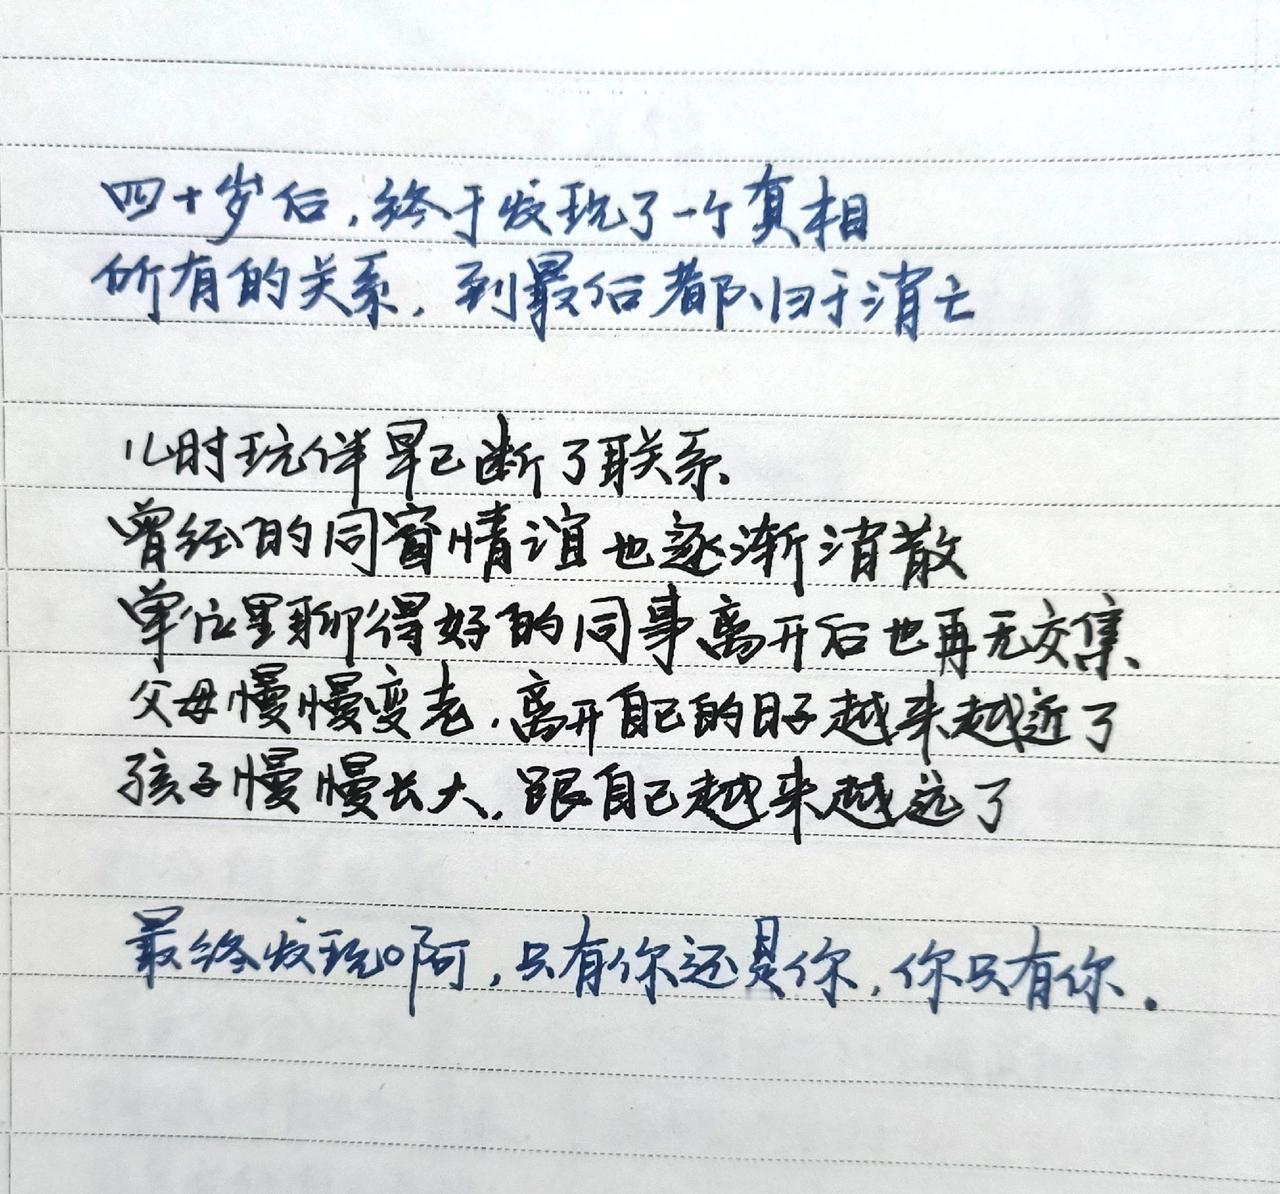 四十岁后，终于发现了一个真相
所有的关系，到最后都归于消亡
儿时玩伴早已断了联系、
曾经的同窗情谊也逐渐消散
单位里聊得好的同事离开后也再无交集、
父母慢慢变老，离开自己的日子越来越近了
孩子慢慢长大，跟自己越来越远了
最终发现啊，只有你还是你，你只有你.